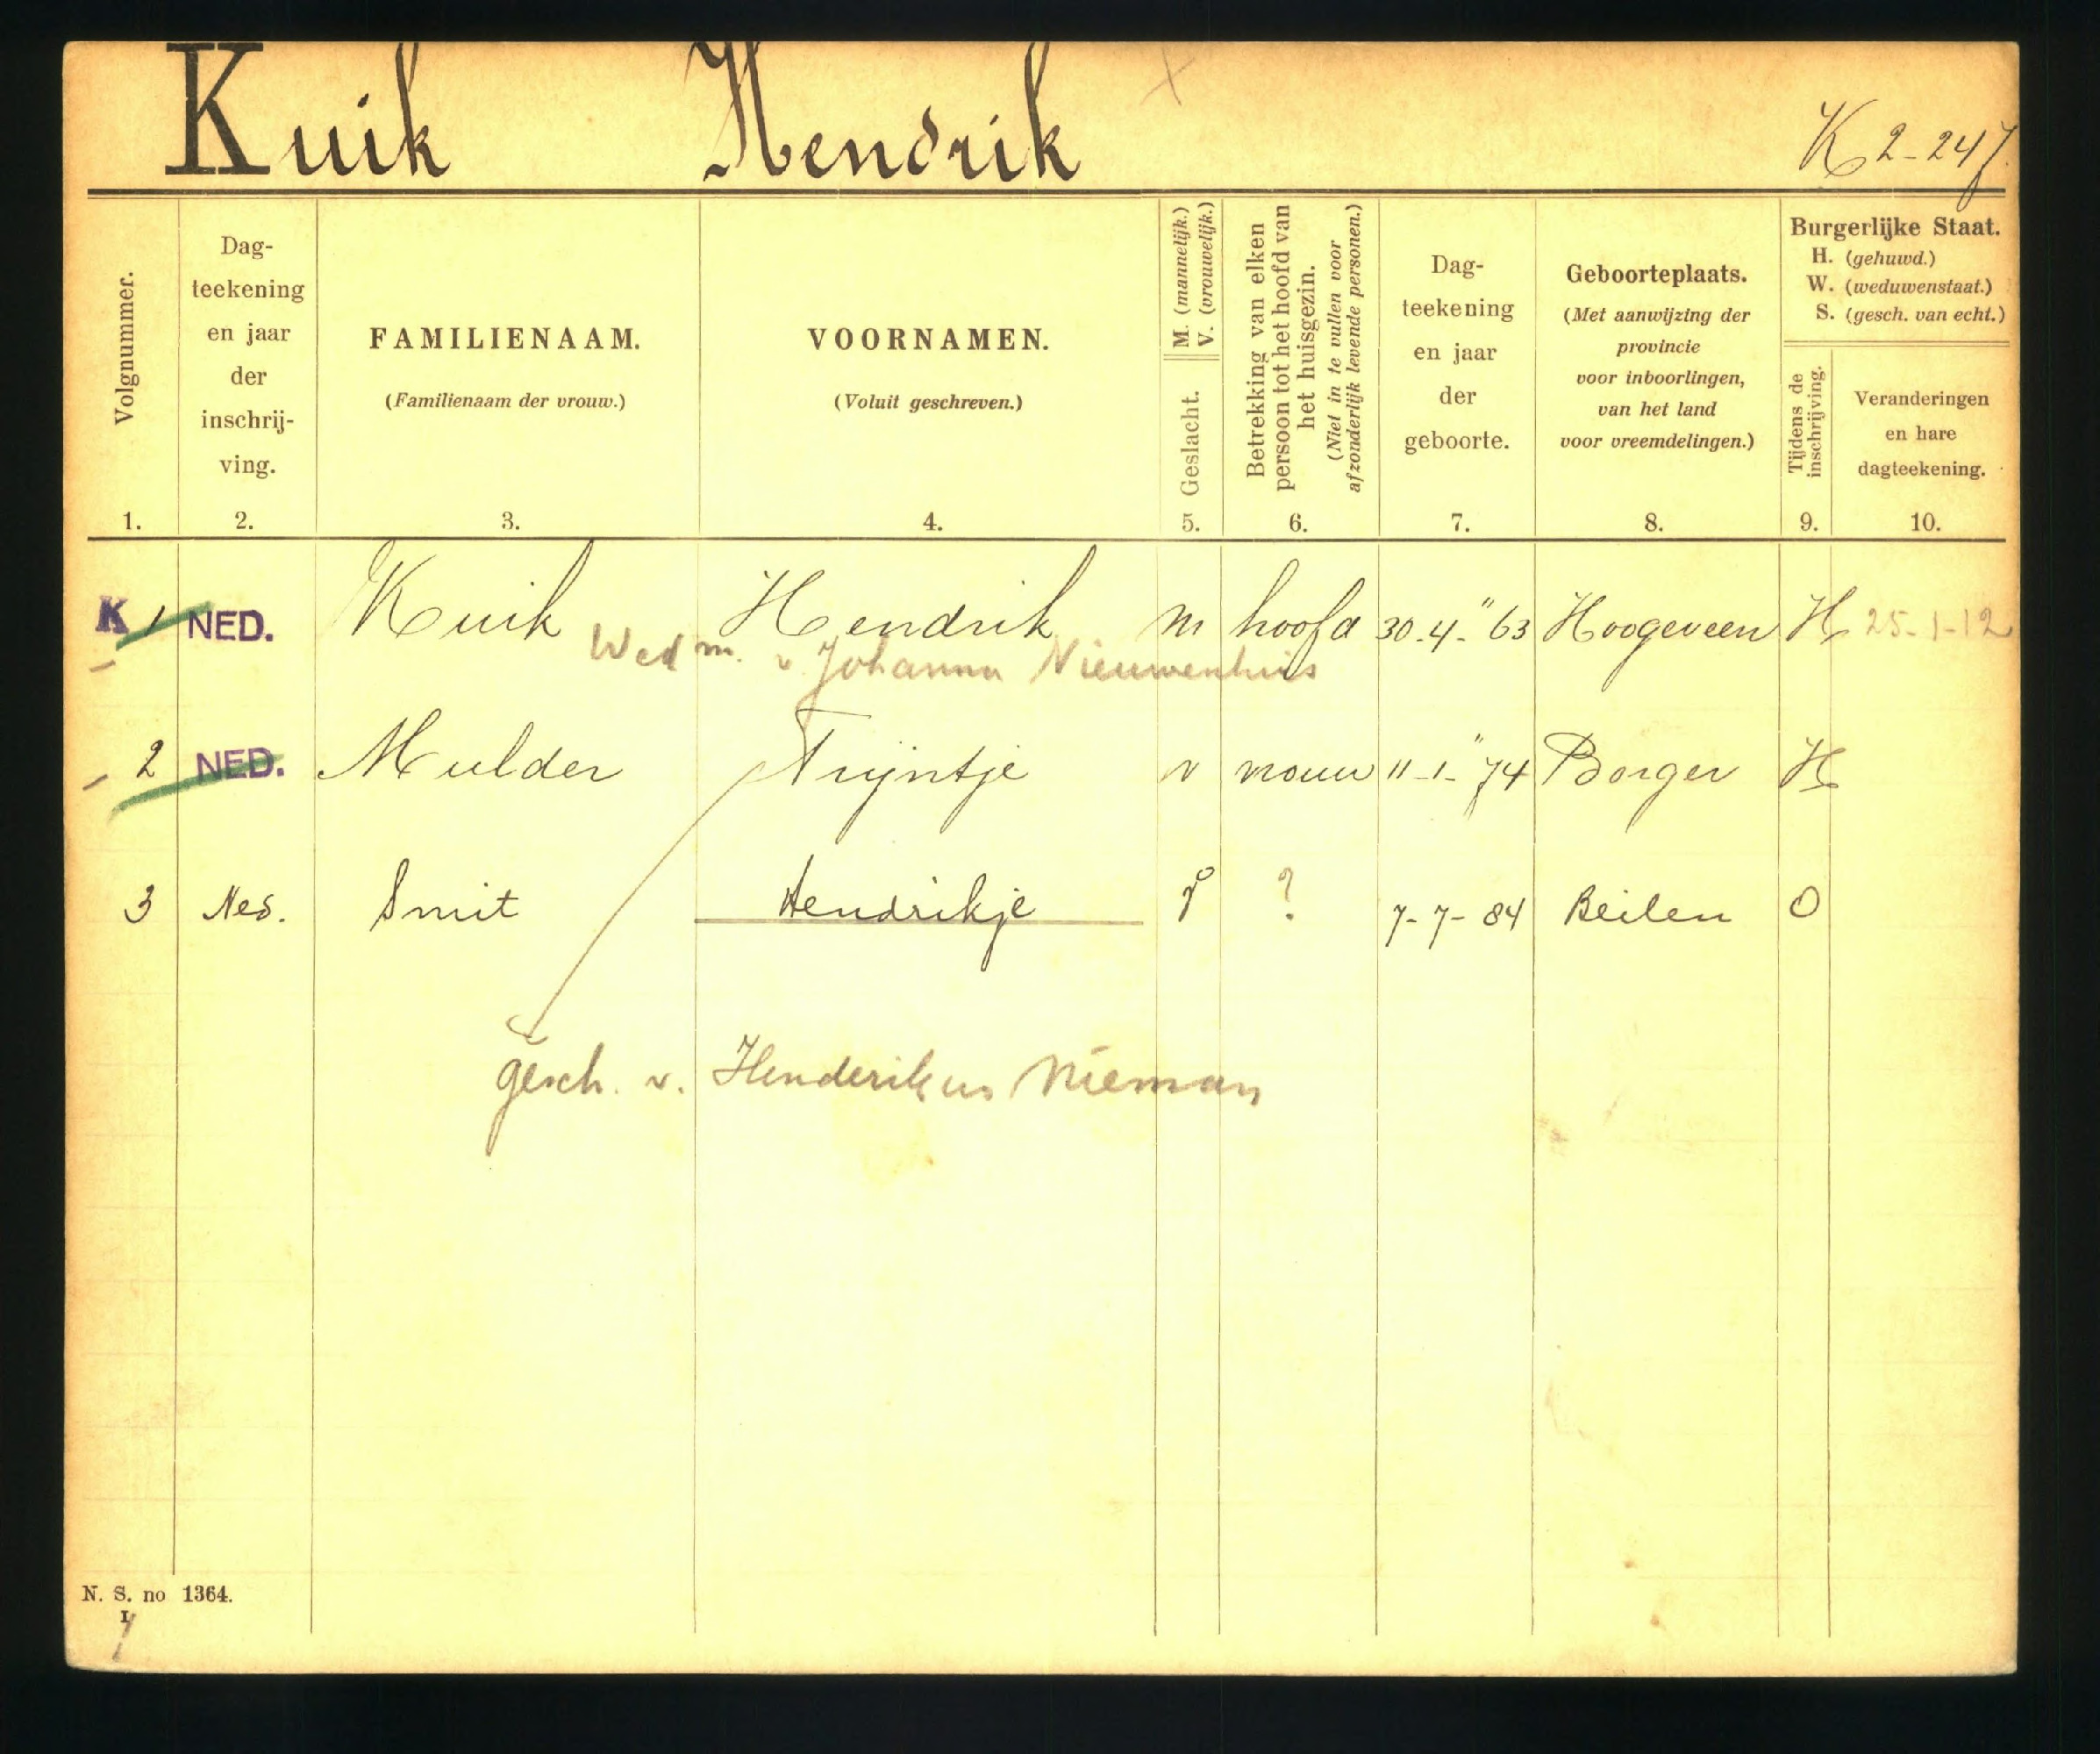 Kuik Hendrik K 2-247
Volgnummer.
Dag-
teekening
en jaar
der
inschrij-
ving.
FAMILIENAAM.
(Familienaam der vrouw.)
VOORNAMEN.
(Voluit geschreven.)
Geslacht. M. (mannelijk.)
V. (vrouwelijk.)
Betrekking van elken
persoon tot het hoofd van
het huisgezin.
(Niet in te vullen voor
afzonderlijk levende personen.)
Dag-
teekening
en jaar
der
geboorte.
Geboorteplaats.
(Met aanwijzing der
provincie
voor inboorlingen,
van het land
voor vreemdelingen.)
Burgerlijke Staat.
H. (gehuwd.)
W. (weduwenstaat.)
S. (gesch. van echt.)
Tijdens de
inschrijving.
Veranderingen
en hare
dagteekening.
1. 2. 3. 4. 5. 6. 7. 8. 9. 10.
K 1 NED. Kuik Hendrik m hoofd 30-4-"63 Hoogeveen H 25-1-12
Wed m. v Johanna Nieuwenhuis
2 NED. Mulder Trijntje v vrouw 11-1-"74 Borger H
3 Ned. Smit Hendrikje ? 7-7-84 Beilen O
gesch. v. Henderikus Nieman
N. S. no 1364.
I